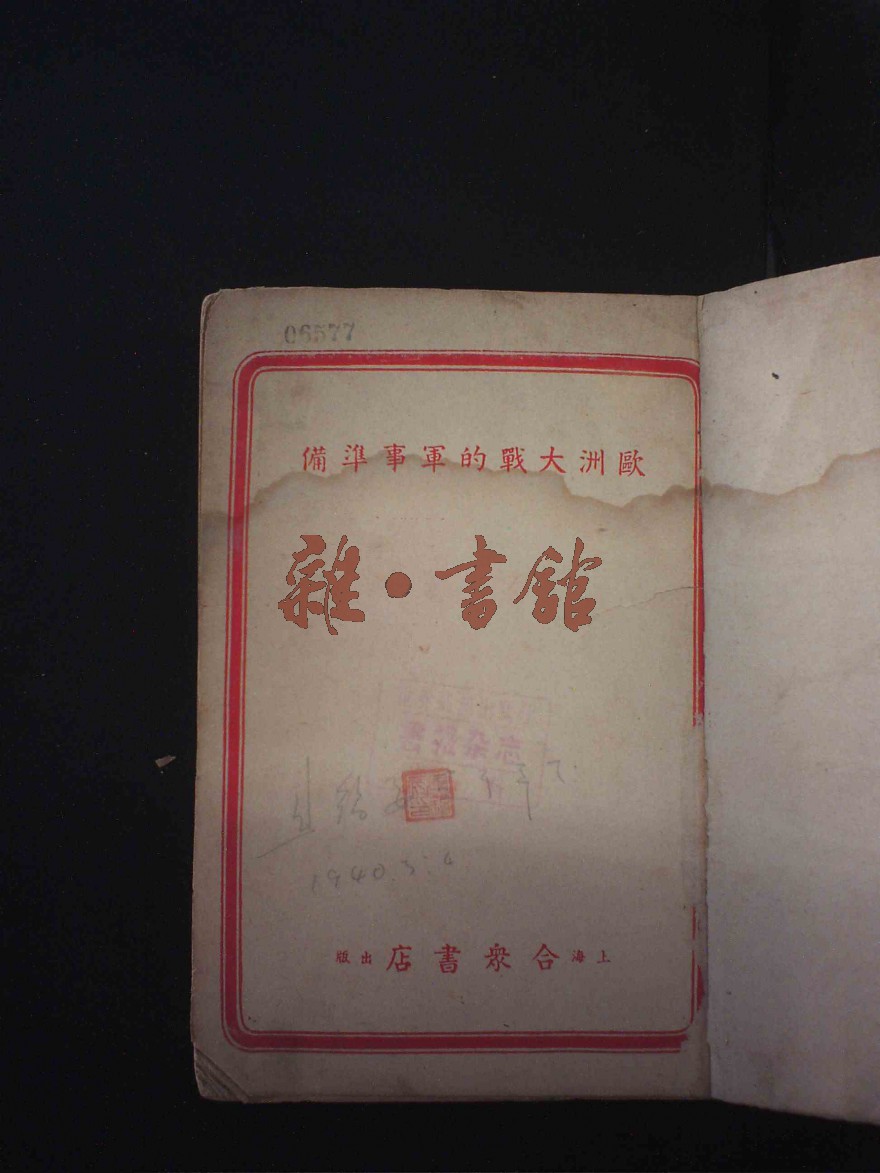 06577
歐洲大戰的軍事準備
雜·書館
書报杂志
1940.3.
上海合衆書店出版